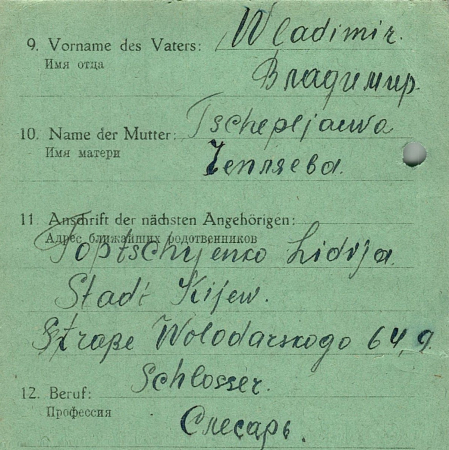 Wladimir.
9. Vorname des Vaters:
Имя отца
Владимир.
10. Name der Mutter: Tschepljaewa
Имя матери
Чепляева.
11. Anschrift der nächsten Angehörigen:
Адрес ближайших родотвенников
Toptschyjenko Lidija.
Stadt Kijew.
Straße Wolodarskogo 64, 9.
12. Beruf: Schlosser.
Профессия
Слесарь.